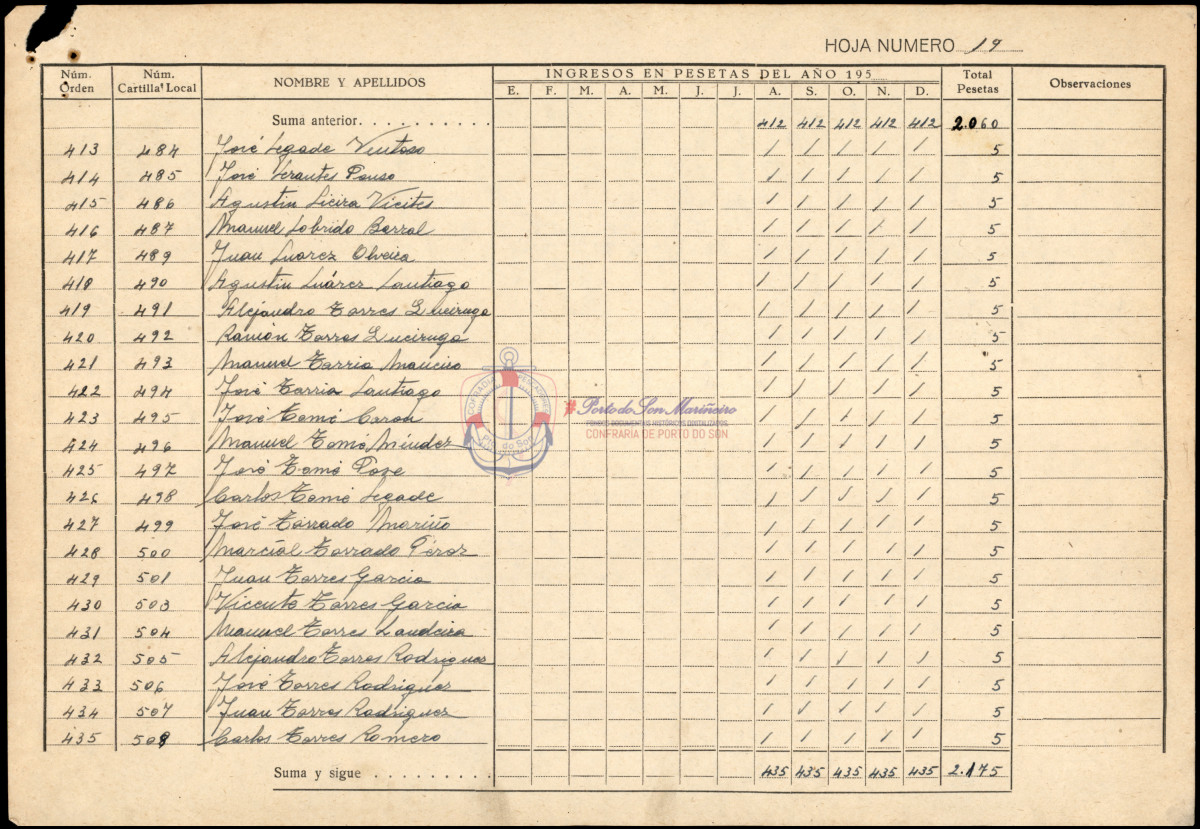 HOJA NUMERO 19
Núm. Orden Núm. Cartilla Local NOMBRE Y APELLIDOS INGRESOS EN PESETAS DEL AÑO 195 Total Pesetas Observaciones
E. F. M. A. M. J. J. A. S. O. N. D.
Suma anterior. . . . . . . . . . 412 412 412 412 412 2.060
413 484 José Legade Ventoso / / / / / 5
414 485 José Lerantes Pouso / / / / / 5
415 486 Agustin Lieira Vicites / / / / / 5
416 487 Manuel Lobrido Barral / / / / / 5
417 489 Juan Luarez Olveira / / / / / 5
418 490 Agustin Luárez Lantiago / / / / / 5
419 491 Alejandro Torres Lueiruga / / / / / 5
420 492 Ramón Torres Lueiruga / / / / / 5
421 493 Manuel Tarrio / / / / / 5
422 494 José Tarrio Lantiago / / / / / 5
423 495 José Tomé Caron / / / / / 5
424 496 Manuel Tomé Méndez / / / / / 5
425 497 José Tomé Pose / / / / / 5
426 498 Carlos Tomé Legade / / / / / 5
427 499 José Torrado Mariño / / / / / 5
428 500 Marcial Torrado Pérez / / / / / 5
429 501 Juan Torres Garcia / / / / / 5
430 503 Vicente Torres Garcia / / / / / 5
431 504 Manuel Torres Landeira / / / / / 5
432 505 Alejandro Torres Rodriguez / / / / / 5
433 506 José Torres Rodriguez / / / / / 5
434 507 Juan Torres Rodriguez / / / / / 5
435 508 Carlos Torres Romero / / / / / 5
Suma y sigue . . . . . . . . . 435 435 435 435 435 2.175
Porto do Son
#Porto do Son Mariñeiro
FONDOS DOCUMENTAIS HISTÓRICOS DIGITALIZADOS
CONFRARIA DE PORTO DO SON